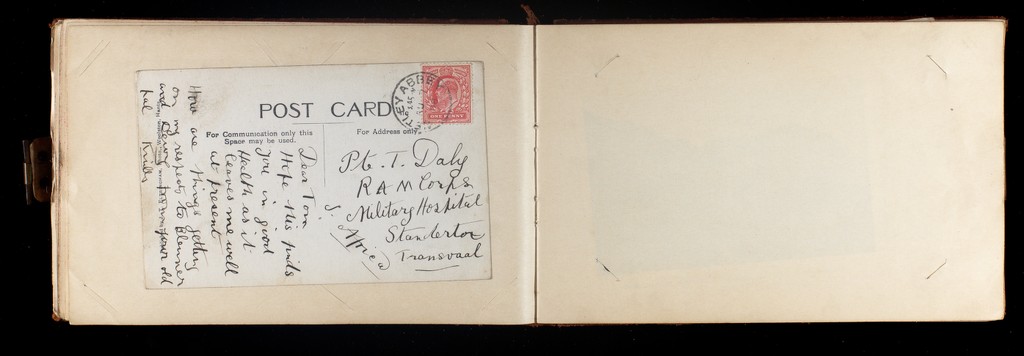 POST CARD
For Communication only this
Space may be used.
For Address only
ONE PENNY
TLEY ABBE
Dear Tom
Hope this finds
you in good
Health as it
leaves me well
at present
How are things getting
on my respects to Blenner
and your old
pal
Pte. T. Daly
R A M Corps
Military Hospital
Standerton
Transvaal
S. Africa